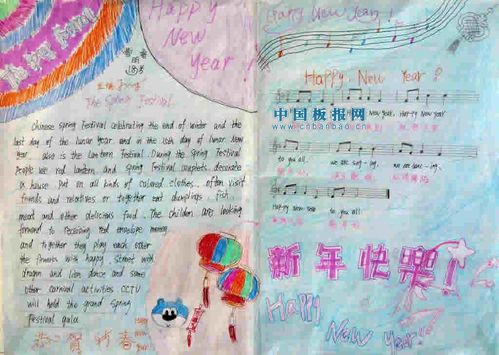 The Spring Festival
Happy
New
Year!
The Spring Festival
Chinese spring Festival celebrating the end of winter and the
last day of the lunar year and in the 15th day of lunar New
year. Also is the lantern Festival. During the Spring Festival
People use red lantern and spring Festival couplets decorate
a house. Put on all kinds of colored clothes, often visit
friends and relatives or together eat dumplings, fish,
meat and other delicious food. The children are looking
forward to receiving red envelope money
and together they play each other
the fireworks with happy. Street with
dragon and lion dance and some
other carnival activities. CCTV
will hold the grand spring
Festival gala.
恭贺新春
Happy New Year!
Happy New Year!
New Year, Happy New Year
中国板报网
cnbanbao.cn
to you all. we are sing-ing, we are danc-ing.
Happy New Year to you all.
新年快乐!
Happy
New Year!